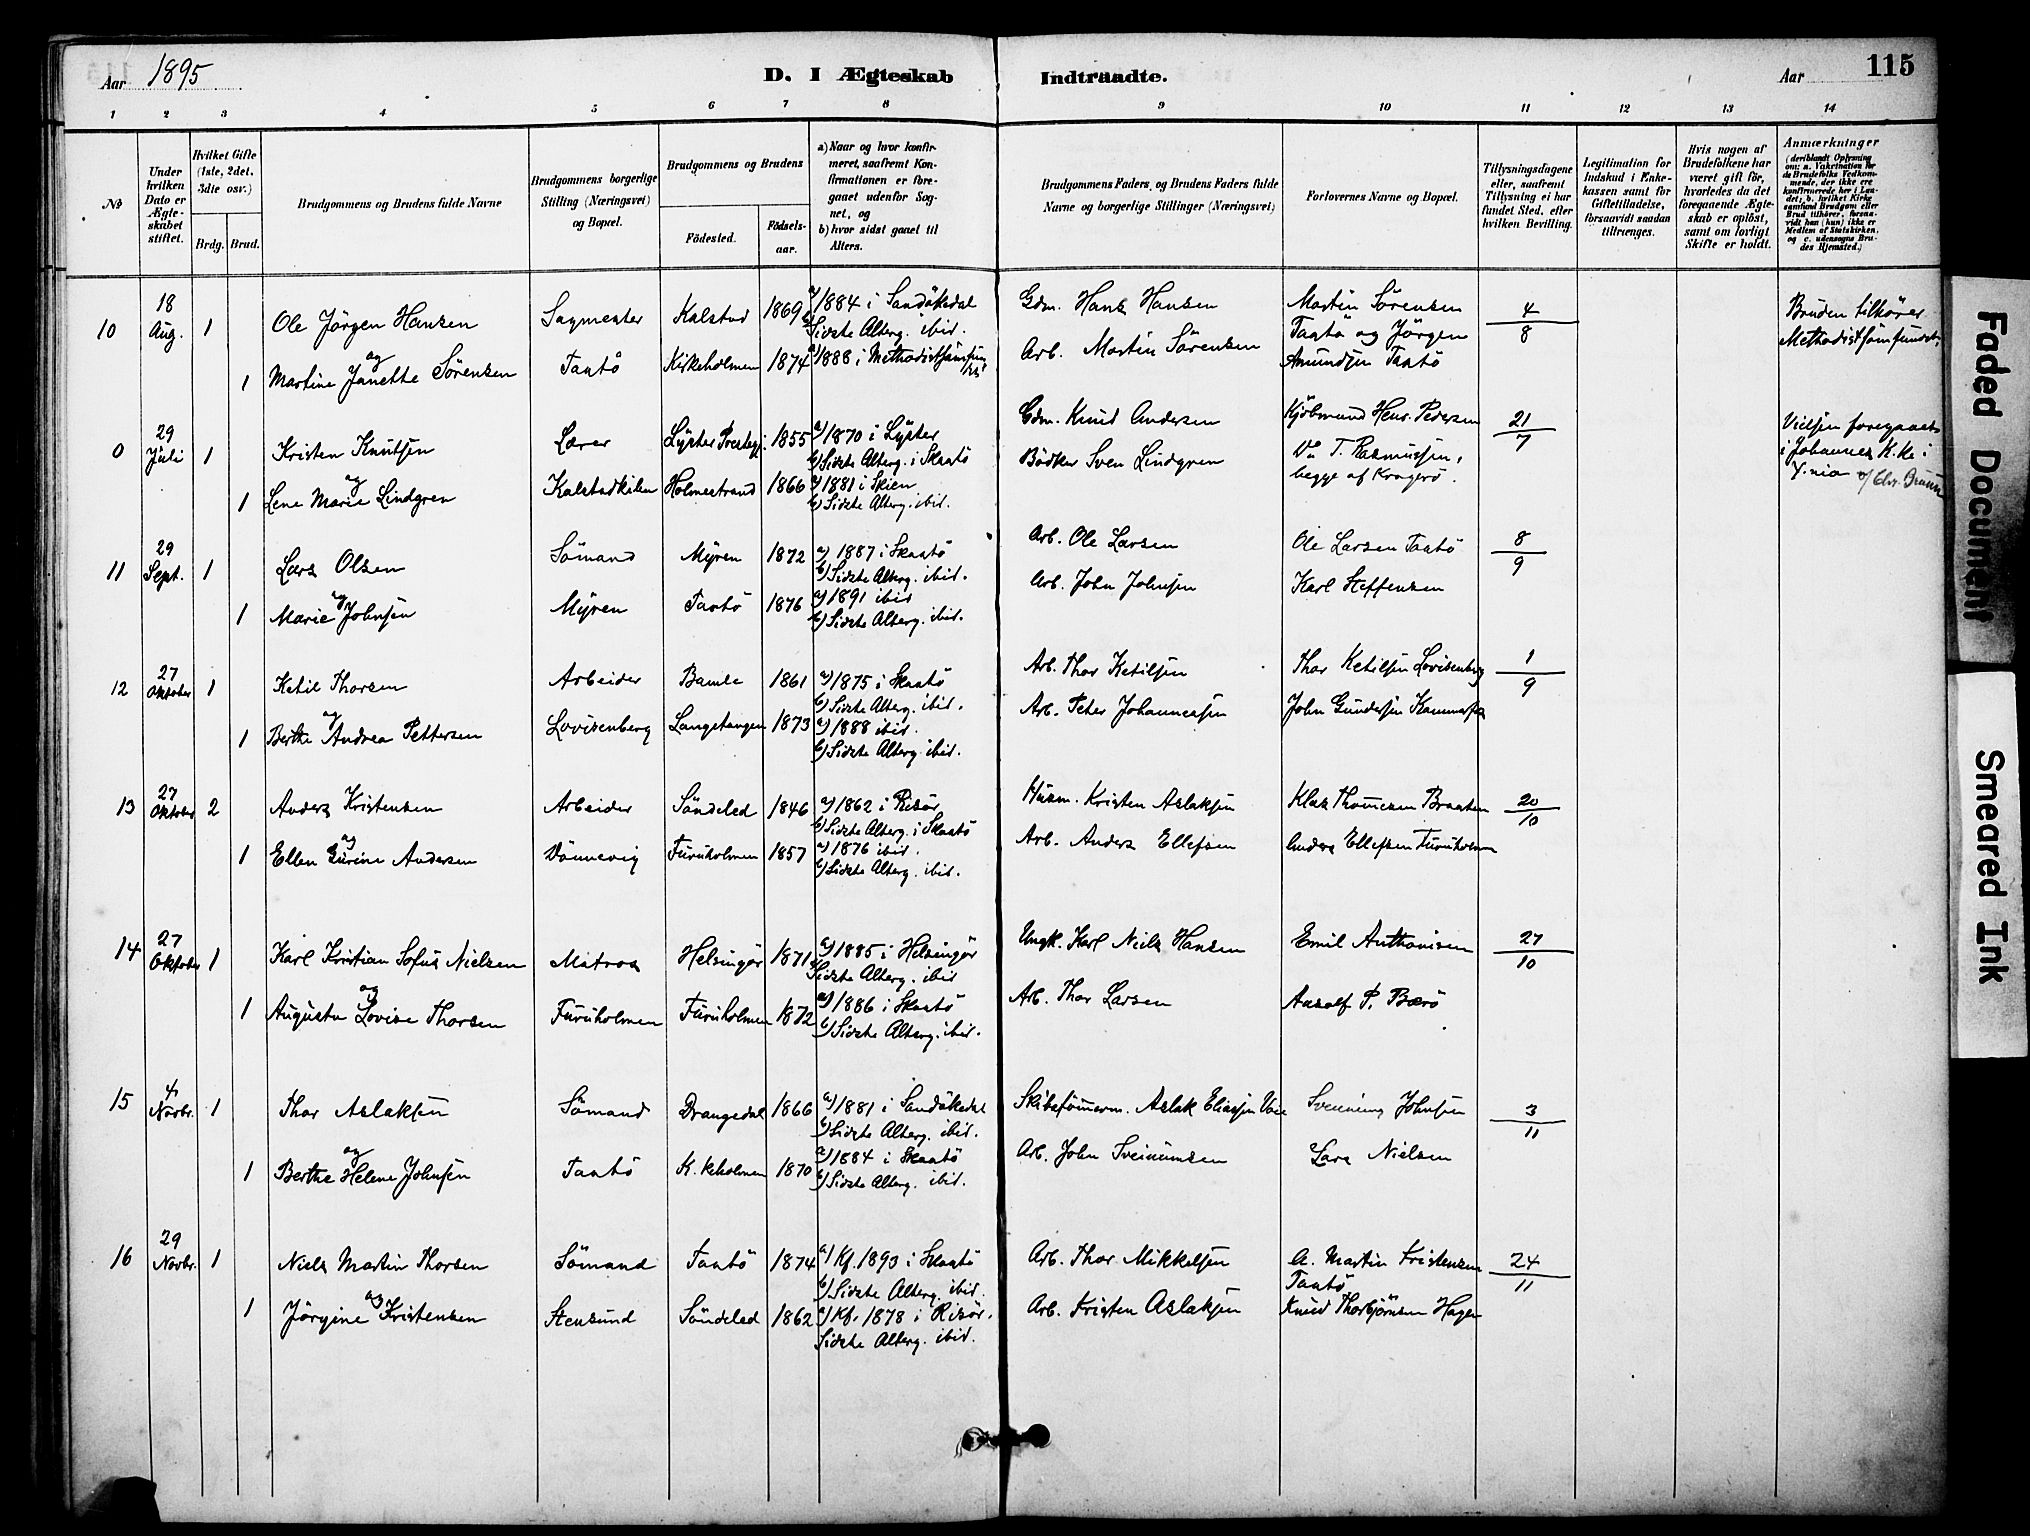 Aar 1895 D. I Ægteskab Indtraadte. Aar 115
1 2 3 4 5 6 7 8 9 10 11 12 13 14
No
Under hvilken Dato er Ægteskabet stiftet.
Hvilket Gifte (1ste, 2det, 3die osv.)
Brdg. Brud.
Brudgommens og Brudens fulde Navne
Brudgommens borgerlige Stilling (Næringsvei) og Bopæl.
Brudgommens og Brudens
Födested. Födselsaar.
a) Naar og hvor konfirmeret, saafremt Konfirmationen er foregaaet udenfor Sognet, og
b) hvor sidst gaaet til Alters.
Brudgommens Faders og Brudens Faders fulde Navne og borgerlige Stillinger (Næringsvei)
Forlovernes Navne og Bopæl.
Tillysningsdagene eller, saafremt Tillysning ei har fundet Sted, efter hvilken Bevilling.
Legitimation for Indskud i Enkekassen samt for Giftetilladelse, forsaavidt saadan tiltrænges.
Hvis nogen af Brudefolkene har været gift för, hvorledes da det foregaaende Ægteskab er oplöst, samt om lovligt Skifte er holdt.
Anmærkninger
(deriblandt Oplysning om: a. Vakcination for de Brudefolks Vedkommende, der ikke ere konfirmerede her i Landet; b. hvilket Kirkesamfund Brudgom eller Brud tilhörer, forsaavidt han (hun) ikke er Medlem af Statskirken, og c. udensogns Brudes Hjemsted.)
10 18 Aug. 1 Ole Jörgen Hansen Sagmester Kalstad 1869 a) 1884 i Sandökedal Gdm. Hans Hansen Martin Sörensen 4/8 Bruden tilhörer
Sidste Alterg. ibid. Taatö og Jörgen Methodistsamfundet,
og
1 Martine Janette Sörensen Taatö Kirkeholmen 1874 a) 1888 i Methodistsamfun Arb. Martin Sörensen Amundsen Taatö
0 29 Juli 1 Kristen Knutsen Lærer Lyster Prestegj. 1855 a) 1870 i Lyster Gdm. Knud Andersen Kjöbmand Hans Pedersen 21/7 Vielsen foregaaet
b) Sidste Alterg. i Skaatö i Johannes K.ke i
og
1 Lene Marie Lindgren Kalstadkilen Holmestrand 1866 a) 1881 i Skien Bödker Sven Lindgren T. Rasmussen, X.nia v/ Chr. Bruun
b) Sidste Alterg. ibid. begge af Kragerö.
11 29 Sept. 1 Lars Olsen Sömand Myren 1872 a) 1887 i Skaatö Arb. Ole Larsen Ole Larsen Taatö 8/9
b) Sidste Alterg. ibid.
og
1 Marie Johnsen Myren Taatö 1876 a) 1891 ibid Arb. John Johnsen Karl Steffensen
b) Sidste Alterg. ibid.
12 27 Oktober 1 Ketil Thorsen Arbeider Bamle 1861 a) 1875 i Skaatö Arb. Thor Ketilsen Thor Ketilsen Lovisenberg 1/9
b) Sidste Alterg. ibid.
og
1 Berthe Andrea Pettersen Lovisenberg Langetangen 1873 a) 1888 ibid. Arb. Peter Johannessen John Gundersen
b) Sidste Alterg. ibid.
13 27 Oktober 2 Anders Kristensen Arbeider Söndeled 1846 a) 1862 i Risör Husm. Kristen Aslaksen Klas Thomesen Braaten 20/10
b) Sidste Alterg. i Skaatö
og
1 Ellen Gurine Andersen Vönnevig Furuholmen 1857 a) 1876 ibid. Arb. Anders Ellefsen Anders Ellefsen Furuholmen
b) Sidste Alterg. ibid.
14 27 Oktober 1 Karl Kristian Sofus Nielsen Matros Helsingör 1871 a) 1885 i Helsingör Ungk. Karl Niels Hansen Emil Anthonisen 27/10
Sidste Alterg. ibid
og
1 Augusta Lovise Thorsen Furuholmen Furuholmen 1872 a) 1886 i Skaatö Arb. Thor Larsen Aasolf P. Bærö
b) Sidste Alterg. ibid.
15 4 Novbr. 1 Thor Aslaksen Sömand Drangedal 1866 a) 1881 i Sandökedal Skibstömerm. Aslak Eliassen Svenning Johnsen 3/11
b) Sidste Alterg. ibid.
og
1 Berthe Helene Johnsen Taatö K.kholmen 1870 a) 1884 i Skaatö Arb. John Sveinumsen Lars Nielsen
b) Sidste Alterg. ibid.
16 29 Novbr. 1 Niels Martin Thorsen Sömand Taatö 1874 a) Kf. 1893 i Skaatö Arb. Thor Mikkelsen A. Martin Kristensen 24/11
b) Sidste Alterg. ibid. Taatö
og
1 Jörgine Kristensen Stensund Söndeled 1862 a) Kf. 1878 i Risör. Arb. Kristen Aslaksen Knud Thorbjörnsen Hagen
Sidste Alterg. ibid.
Faded Document
Smeared Ink